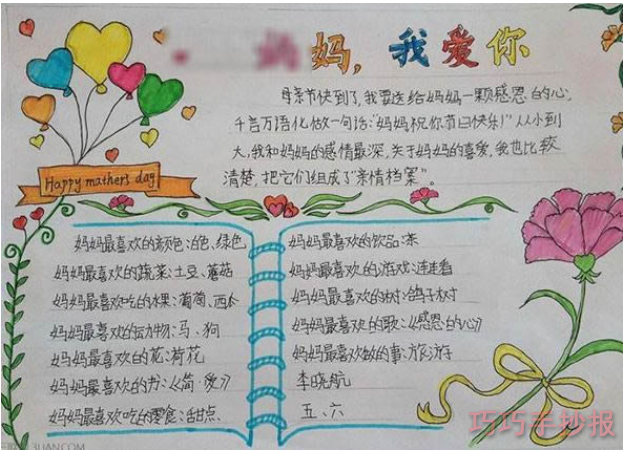 妈妈,我爱你
母亲节快到了,我要送给妈妈一颗感恩的心,
千言万语化做一句话:“妈妈祝你节日快乐!”从小到
大,我和妈妈的感情最深,关于妈妈的喜爱,我也比较
清楚,把它们组成了“亲情档案”。
Happy mathers day
妈妈最喜欢的颜色:白色、绿色
妈妈最喜欢的蔬菜:土豆、蘑菇
妈妈最喜欢吃的水果:葡萄、西瓜
妈妈最喜欢的动物:马、狗
妈妈最喜欢的花:荷花
妈妈最喜欢的书:《简·爱》
妈妈最喜欢吃的零食:甜点、
妈妈最喜欢的饮品:茶
妈妈最喜欢的游戏:连连看
妈妈最喜欢的树:鸽子树
妈妈最喜欢的歌:《感恩的心》
妈妈最喜欢做的事:旅游
李晓航
五、六
巧巧手抄报